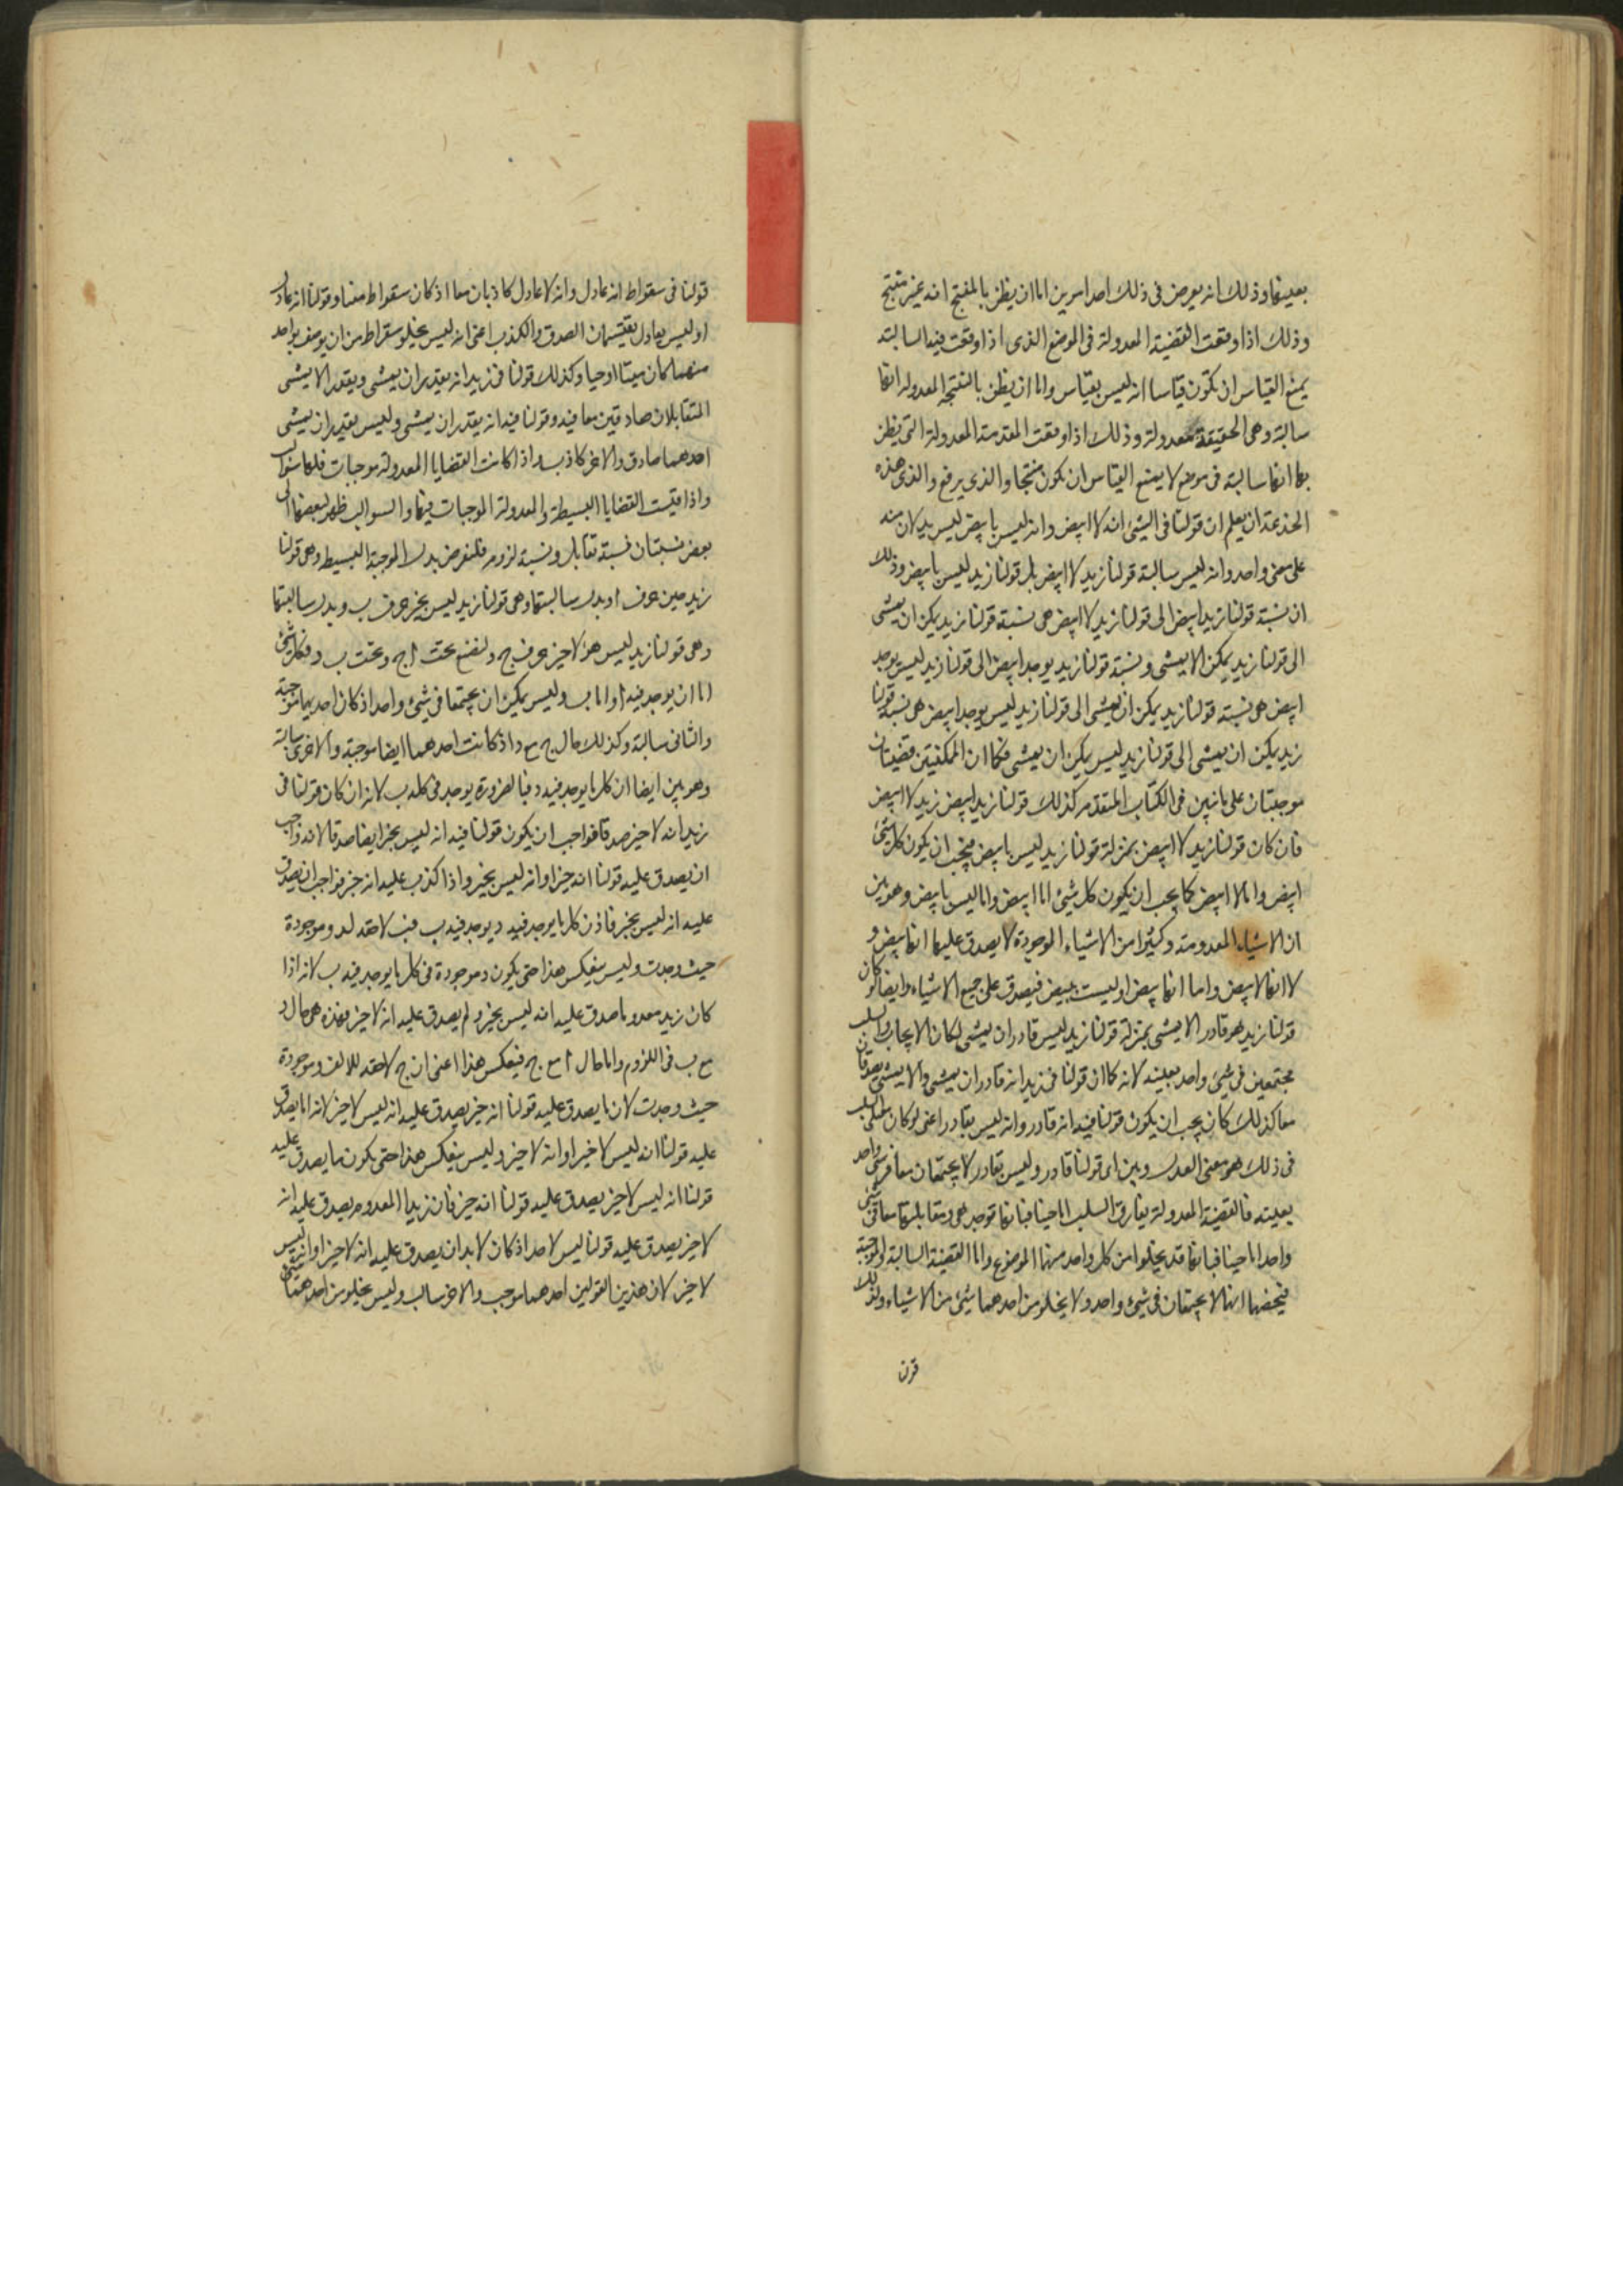 بعينها وذلك انه يعرض فى ذلك احد امرين اما ان يظن بالمنتج انه غير منتج
وذلك اذا وقعت القضية المعدولة فى الموضع الذى اذا وقعت فيه السالبة
يمنع القياس ان تكون قياسا انه ليس بقياس واما ان يظن بالنتيجة المعدولة انها
سالبة وهى الحقيقة معدولة وذلك اذا وقعت المقدمة المعدولة التى يظن
بها انها سالبة فى موضع لا يمنع القياس ان يكون منتجا والذى يرفع والذى هذه
الخدعة ان يعلم ان قولنا فى الشئ انه لا ابيض وانه ليس بابيض ليس يدلان منه
على معنى واحد وانه ليس سالبة قولنا زيد لا ابيض بل قولنا زيد ليس بابيض وذلك
ان نسبة قولنا زيد ابيض الى قولنا زيد لا ابيض هى نسبة قولنا زيد يمكن ان يمشى
الى قولنا زيد يمكن الا يمشى ونسبة قولنا زيد يوجد ابيض الى قولنا زيد ليس يوجد
ابيض هى نسبة قولنا زيد يمكن ان يمشى الى قولنا زيد ليس يوجد ابيض هى نسبة قولنا
زيد يمكن ان يمشى الى قولنا زيد ليس يمكن ان يمشى فكما ان الممكنتين قضيتان
موجبتان على ما تبين فى الكتاب المتقدم كذلك قولنا زيد ابيض زيد لا ابيض
فان كان قولنا زيد لا ابيض بمنزلة قولنا زيد ليس بابيض فيجب ان يكون كل شئ
ابيض واما لا ابيض كما يجب ان يكون كل شئ اما ابيض واما ليس بابيض وهو بين
ان الاشياء المعدومة وكثيرا من الاشياء الموجودة لا يصدق عليها انها بيض و
لا انها لا بيض واما انها بيض او ليست ببيض فيصدق على جميع الاشياء وايضا لو كان
قولنا زيد هو قادر الا يمشى بمنزلة قولنا زيد ليس قادر ان يمشى لكان الايجاب والسلب
مجتمعين فى شئ واحد بعينه لانه كما ان قولنا فى زيد انه قادر ان يمشى والا يمشى يصدقان
معا كذلك كان يجب ان يكون قولنا فيه انه قادر وانه ليس بقادر اعنى لو كان السلب
فى ذلك هو معنى العدل وبين ان قولنا قادر وليس بقادر لا يجتمعان معا فى شئ واحد
بعينه فالقضية المعدولة يفارق السلب اما حينا فبانها توجد هى ومقابلتها معا فى شئ
واحد اما حينا فبانها قد يخلوا من كل واحد منها الموضوع واما القضية السالبة والموجبة
فيخصهما انهما لا يجتمعان فى شئ واحد ولا يخلو من احدهما شئ من الاشياء ولذلك
قولنا
قولنا فى سقراط انه عادل وانه لا عادل كاذبان معا اذ كان سقراط ميتا وقولنا انه عادل
او ليس بعادل يقتسمان الصدق والكذب اعنى انه ليس يخلو سقراط من ان يوصف بواحد
منهما كان ميتا او حيا وكذلك قولنا فى زيد انه يقدر ان يمشى ويقدر الا يمشى
المتقابلان صادقين معا فيه وقولنا فيه انه يقدر ان يمشى وليس يقدر ان يمشى
احدهما صادق والاخر كاذب واذا كانت القضايا المعدولة موجبات فلها سوالب
واذا قيست القضايا البسيطة والمعدولة الموجبات فيها والسوالب ظهر لبعضها الى
بعض نسبتان نسبة تقابل ونسبة لزوم فلنفرض بدل الموجبة البسيطة وهى قولنا
زيد خير حرف ا وبدل سالبتها وهى قولنا زيد ليس بخير حرف ب وبدل سالبتها
وهى قولنا زيد ليس هو لا خير حرف ج ولنضع تحت ا ج وتحت ب د فكل شئ
اما ان يوجد فيه ا واما ب وليس يمكن ان يجتمعا فى شئ واحد اذ كان احديهما موجبة
والثانى سالبة وكذلك حال ج مع د اذ كانت احدهما ايضا موجبة والاخرى سالبة
وهو بين ايضا ان كل ما يوجد فيه د فبالضرورة يوجد فى كله ب لانه ان كان قولنا فى
زيد انه لا خير صدقا فواجب ان يكون قولنا فيه انه ليس بخير ايضا صدقا لانه واجب
ان يصدق عليه قولنا انه خير او انه ليس بخير واذا كذب عليه انه خير فواجب ان يصدق
عليه انه ليس بخير فاذن كل ما يوجد فيه د يوجد فيه ب فب لاحقة لد وموجودة
حيث وجدت وليس ينعكس هذا حتى يكون د موجودة فى كل ما يوجد فيه ب لانه اذا
كان زيد معدوما صدق عليه انه ليس بخير ولم يصدق عليه انه لا خير فهذه هى حال د
مع ب فى اللزوم واما حال ا مع ج فبعكس هذا اعنى ان ج لاحقة للالف وموجودة
حيث وجدت لان ما يصدق عليه قولنا انه خير يصدق عليه انه ليس لا خير لانه اما يصدق
عليه قولنا انه ليس لا خيرا وانه لا خير وليس ينعكس هذا حتى يكون ما يصدق عليه
قولنا انه ليس لا خير يصدق عليه قولنا انه خير فان زيدا المعدوم يصدق عليه انه
لا خير يصدق عليه قولنا ليس لاحد اذ كان لا بد ان يصدق عليه انه لا خير او انه ليس
لا خير لان هذين القولين احدهما موجب والاخر سالب وليس يخلو من احدهما شئ